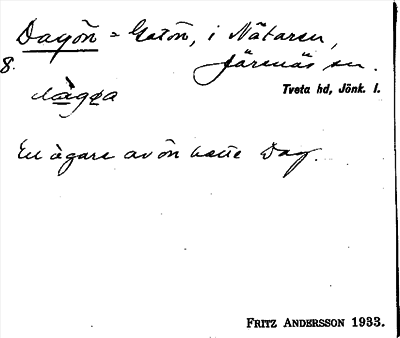 Dagön = Gatön, i Nätaren,
8. Järsnäs sn.
Tveta hd, Jönk. l.
En ägare av ön hette Dag.
FRITZ ANDERSSON 1933.